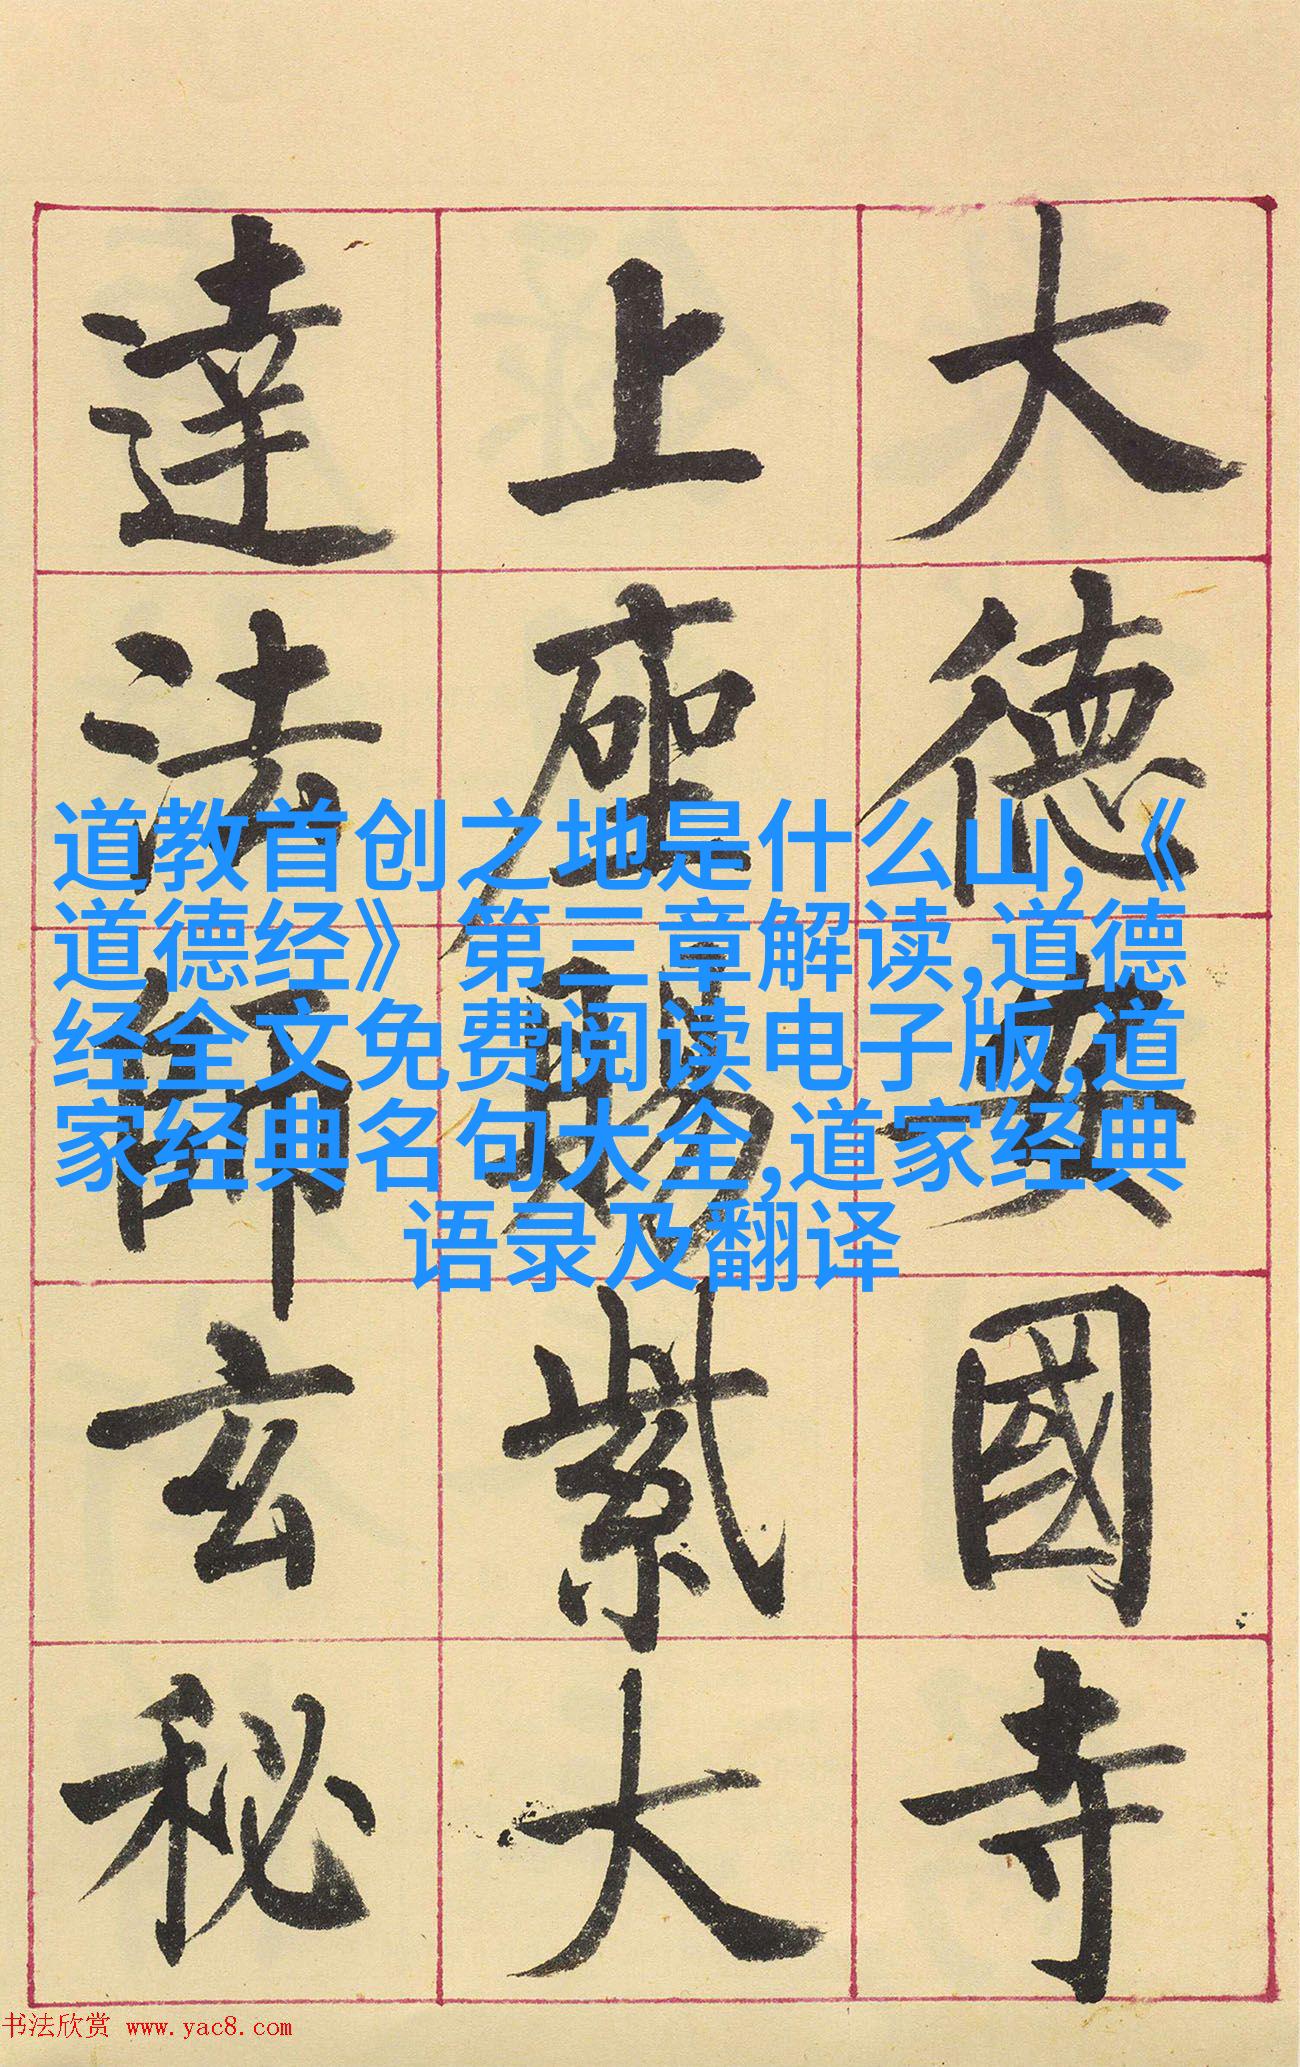 大德安國寺
上座賜紫大
達法師玄秘
道教首创之地是什么山,《
道德经》第三章解读,道德
经全文免费阅读电子版,道
家经典名句大全,道家经典
语录及翻译
书法欣赏 www.yac8.com